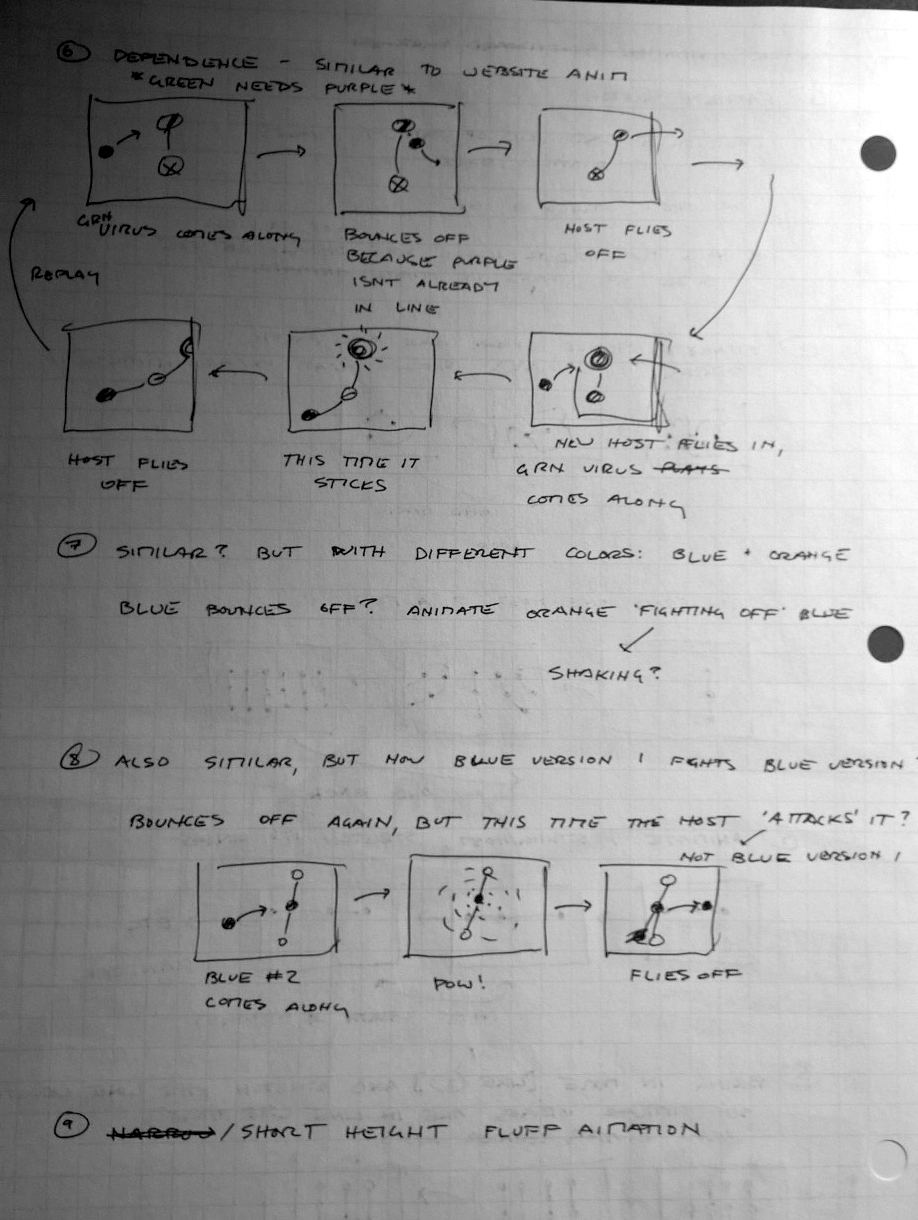 6 DEPENDENCE - SIMILAR TO WEBSITE ANIM
*GREEN NEEDS PURPLE*
GRN VIRUS COMES ALONG
BOUNCES OFF
BECAUSE PURPLE
ISNT ALREADY
IN LINE
HOST FLIES
OFF
REPLAY
NEW HOST FLIES IN,
GRN VIRUS PLAYS
COMES ALONG
THIS TIME IT
STICKS
HOST FLIES
OFF
7 SIMILAR? BUT WITH DIFFERENT COLORS: BLUE + ORANGE
BLUE BOUNCES OFF? ANIMATE ORANGE 'FIGHTING OFF' BLUE
SHAKING?
8 ALSO SIMILAR, BUT NOW BLUE VERSION 1 FGHTS BLUE VERSION
BOUNCES OFF AGAIN, BUT THIS TIME THE HOST 'ATTACKS' IT?
NOT BLUE VERSION 1
BLUE #2
COMES ALONG
POW!
FLIES OFF
9 NARROW/SHORT HEIGHT FLUFF AIMATION